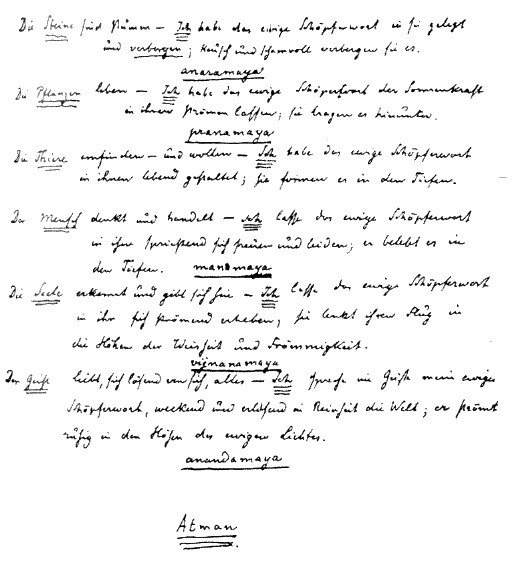 Die Steine sind stumm – Ich habe das ewige Schöpferwort in sie gelegt
und verborgen; keusch und schamvoll verbergen sie es.
anaramaya
Die Pflanzen leben – Ich habe das ewige Schöpferwort der Sonnenkraft
in ihnen strömen lassen; sie tragen es hinunter.
pranamaya
Die Thiere empfinden – und wollen – Ich habe das ewige Schöpferwort
in ihnen lebend gestaltet; sie formen es in den Tiefen.
Der Mensch denkt und handelt – Ich lasse das ewige Schöpferwort
in ihm sprießend sich freuen und leiden; er belebt es in
den Tiefen. manomaya
Die Seele erkennt und gibt sich hin – Ich lasse das ewige Schöpferwort
in ihr sich strömend erheben; sie lenkt ihren Flug in
die Höhen der Weisheit und Frömmigkeit.
vijnanamaya
Der Geist liebt, sich lösend von sich, alles – Ich spreche im Geiste mein ewiges
Schöpferwort, weckend und erlösend in Reinheit die Welt; er strömt
ruhig in den Höhen des ewigen Lichtes.
anandamaya
Atman